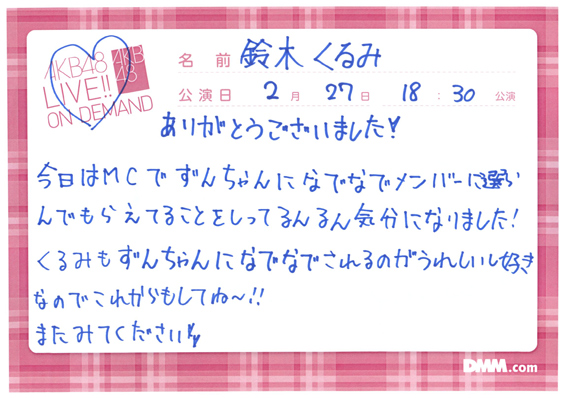 AKB48
LIVE!!
ON DEMAND
AKB
48
名前 鈴木くるみ
公演日 2月 27日 18:30 公演
ありがとうございました!
今日はMCでずんちゃんになでなでメンバーに選ら
んでもらえてることをしってるんるん気分になりました!
くるみもずんちゃんになでなでされるのがうれしいし好き
なのでこれからもしてね〜!!
またみてください
DMM.com